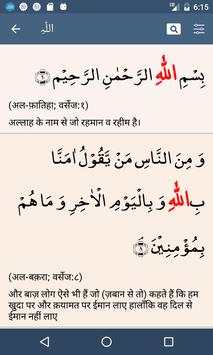 6:15
اللَّه
بِسْمِ اللّٰهِ الرَّحْمٰنِ الرَّحِيْمِ ۝۱
(अल-फ़ातिहा; वर्सेज:१)
अल्लाह के नाम से जो रहमान व रहीम है।
وَ مِنَ النَّاسِ مَنْ يَّقُوْلُ اٰمَنَّا
بِاللّٰهِ وَ بِالْيَوْمِ الْاٰخِرِ وَ مَا هُمْ
بِمُؤْمِنِيْنَ ۝۸
(अल-बक़रा; वर्सेज:८)
और बाज़ लोग ऐसे भी हैं जो (ज़बान से तो) कहते हैं कि हम
खुदा पर और क़यामत पर ईमान लाए हालाँकि वह दिल से
ईमान नहीं लाए